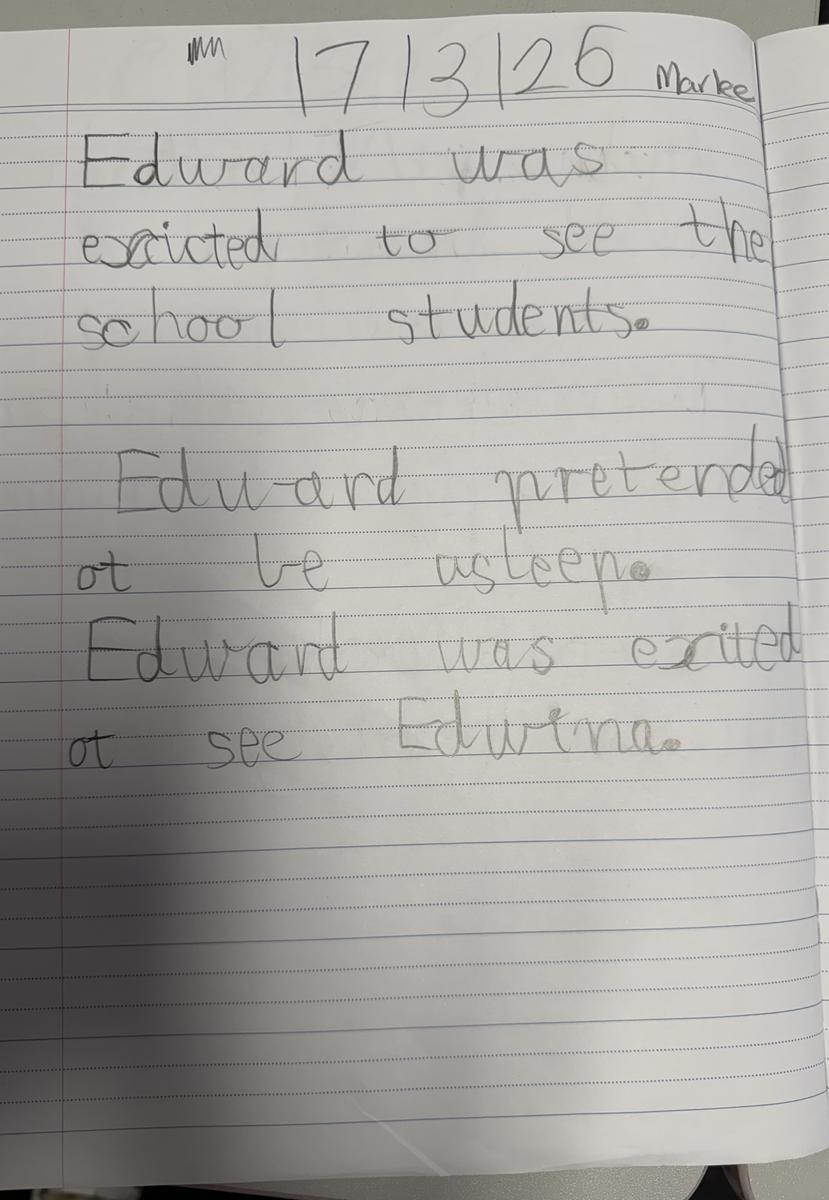 17/3/26 Markee
Edward was
excicted to see the
school students.
Edward pretended
ot be asleep.
Edward was exited
ot see Edwina.